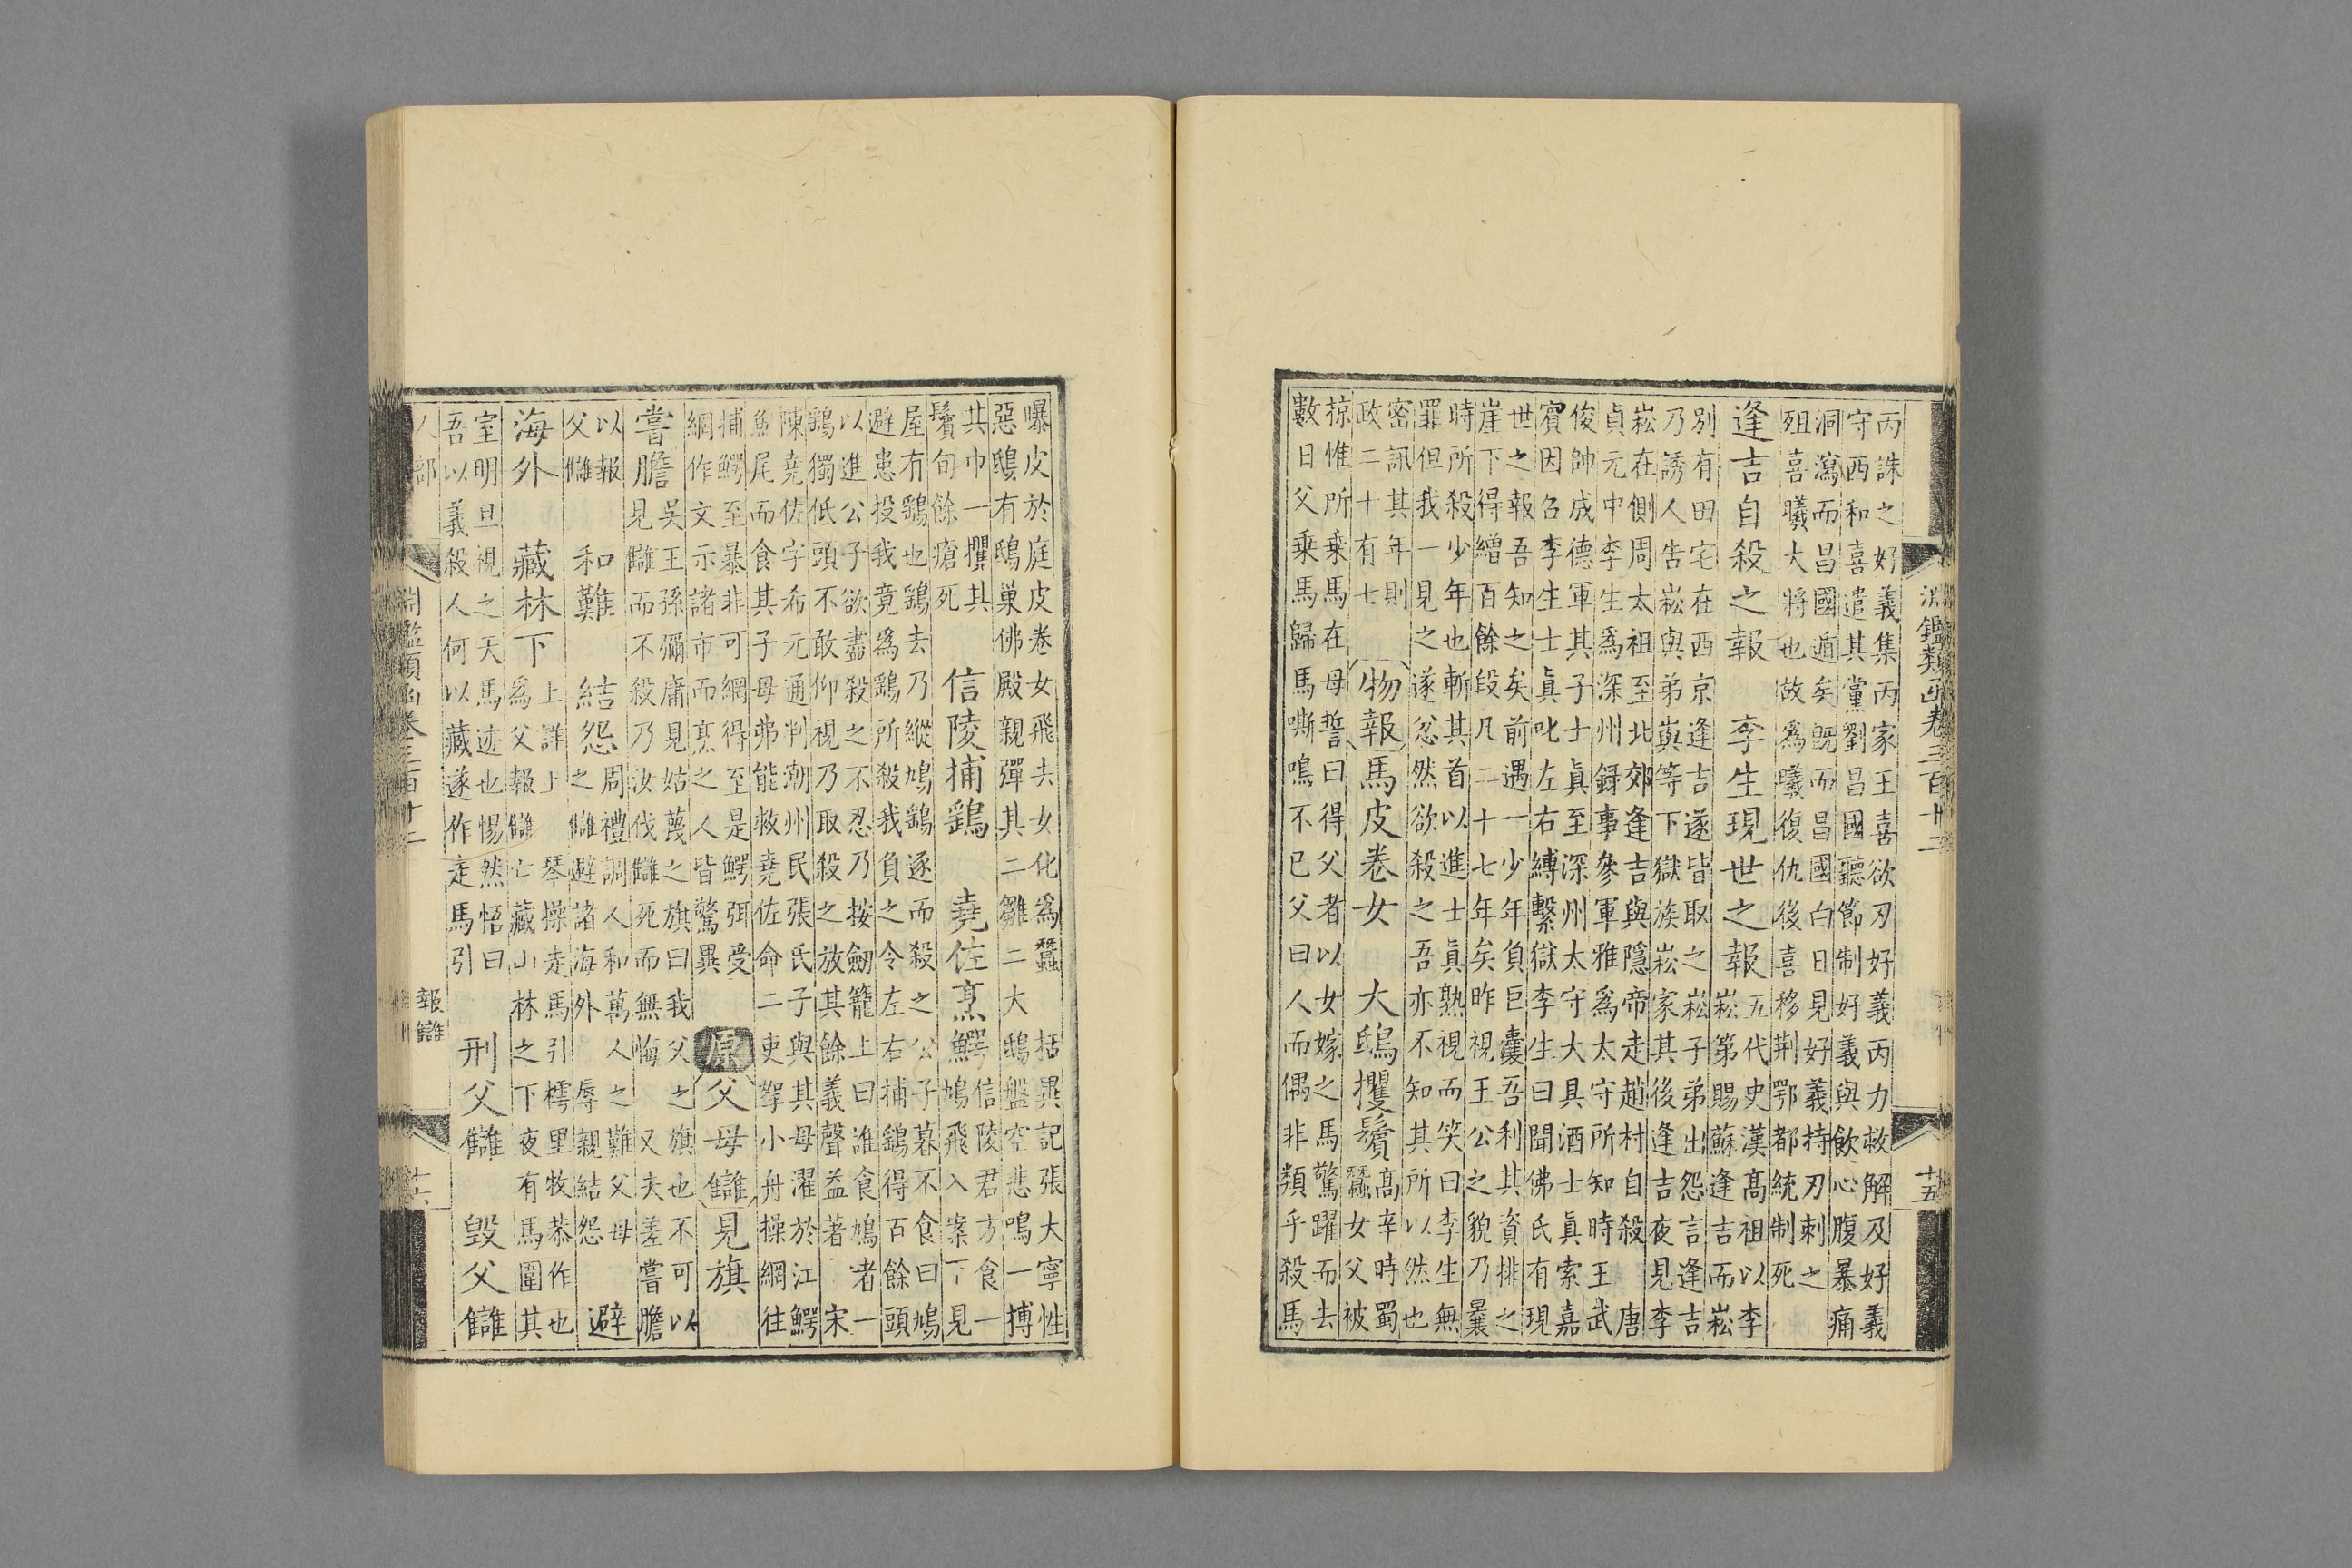 淵鑑類函卷三百十二 十五
丙誅之好義集丙家王喜欲刃好義丙力救解及好義
守西和喜遣其黨劉昌國聽節制好義與飲心腹暴痛
洞瀉而昌國遁矣旣而昌國白日見好義持刃刺之
殂喜曦大將也故爲曦復仇後喜移荆鄂都統制死
逢吉自殺之報 李生現世之報 五代史漢高祖以李
崧第賜蘇逢吉而崧
別有田宅在西京逢吉遂皆取之崧子弟出怨言逢吉
乃誘人告崧與弟㠖等下獄族崧家其後逢吉夜見李
崧在側周太祖至北郊逢吉與隱帝走趙村自殺 唐
貞元中李生爲深州録事參軍雅爲太守所知時王武
俊帥成德軍其子士眞至深州太守大具酒士眞索嘉
賓因召李生士眞叱左右縛繫獄李生曰聞佛氏有現
世之報吾知之矣前遇一少年負巨囊吾利其資排之
崖下得繒百餘段凡二十七年矣昨視王公之貌乃曩
時所殺少年也斬其首以進士眞熟視而笑曰李生無
罪但我一見之遂忿然欲殺之吾亦不知其所以然也
密訊其年則
政二十有七 物報 馬皮卷女 大鴟攫鬢 高辛時蜀
蠶女父被
掠惟所乘馬在母誓曰得父者以女嫁之馬驚躍而去
數日父乘馬歸馬嘶鳴不已父曰人而偶非類乎殺馬
曝皮於庭皮卷女飛去女化爲蠶 括異記張大寧性
惡鴟有鴟巢佛殿親彈其二雛二大鴟盤空悲鳴一搏
其巾一攫其
鬢旬餘瘡死 信陵捕鷂 堯佐烹鰐 信陵君方食一
鳩飛入案下見
屋有鷂也鷂去乃縱鳩鷂逐而殺之公子暮不食曰鳩
避患投我竟爲鷂所殺我負之令左右捕鷂得百餘頭
以進公子欲盡殺之不忍乃按劒籠上曰誰食鳩者一
鷂獨低頭不敢仰視乃取殺之放其餘義聲益著 宋
陳堯佐字希元通判潮州民張氏子與其母濯於江鰐
魚尾而食其子母弗能救堯佐命二吏拏小舟操網往
捕鰐至暴非可網得至是鰐弭受
網作文示諸市而烹之人皆驚異 原 父母讎 見旗
嘗膽 吳王孫彌庸見姑蔑之旗曰我父之旗也不可以
見讎而不殺乃汝伐讎死而無悔 又夫差嘗膽
以報
父讎 和難 結怨 周禮調人和萬人之難父母
之讎避諸海外 辱親結怨 避
海外 藏林下 上詳上 琴操走馬引樗里牧恭作也
爲父報讎亡藏山林之下夜有馬圍其
室明旦視之天馬迹也惕然悟曰
吾以義殺人何以藏遂作走馬引 刑父讎 毀父讎
人部 淵鑑類函卷三百十二 報讎 十六